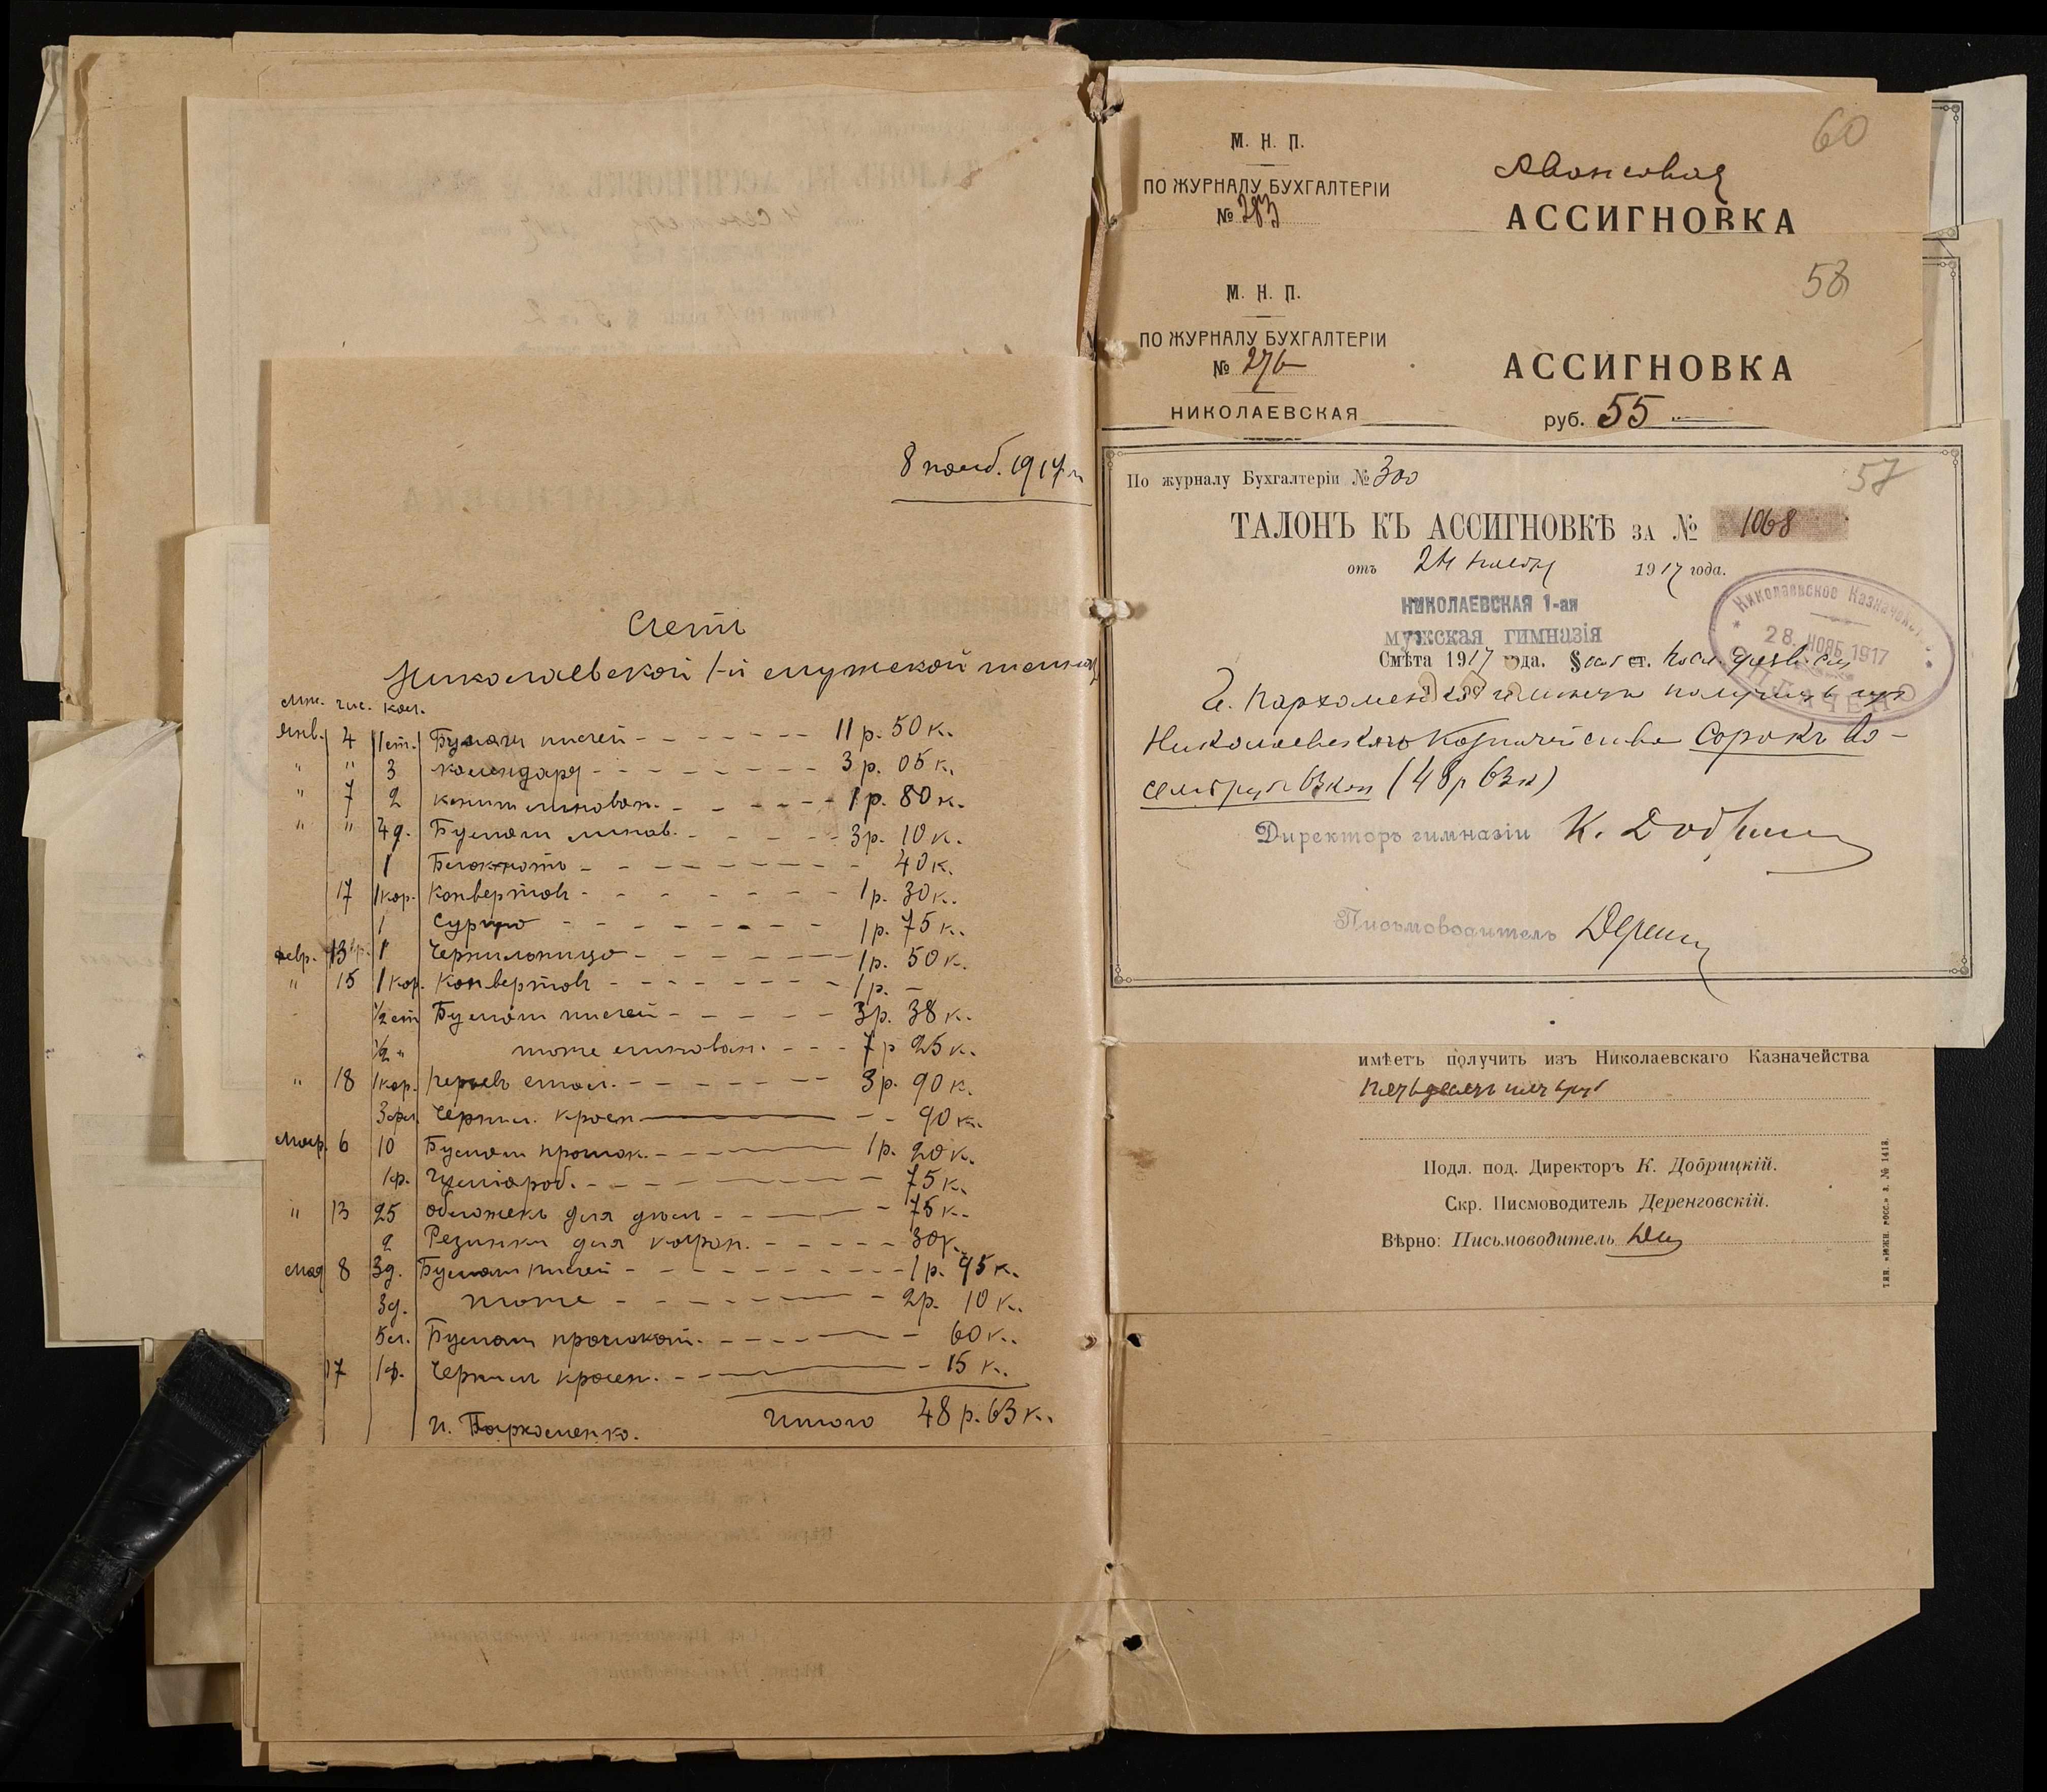 8 нояб. 1917 г.
Счетъ
Николаевской 1-й мужской гимназ
Мѣс. чис. кол.
Янв. 4 1 ст. Бумаги писчей - 11 р. 50 к.
" " 3 календаря - 3 р. 05 к.
" 7 2 книги линован. - 1 р. 80 к.
" " 4 д. Бумаги линов. - 3 р. 10 к.
1 Блокнотъ - 40 к.
17 1 кор. Конвертов - 1 р. 30 к.
1 Сургуч - 1 р. 75 к.
Февр. 13 1 Чернильница - 1 р. 50 к.
" 15 1 кор. Конвертов - 1 р. -
1/2 ст Бумаги писчей - 3 р. 38 к.
1/2 " тоже линован. - 7 р 25 к.
" 18 1 кор. перьевъ - 3 р. 90 к.
3 фл. Чернил. красн - 90 к.
Мар. 6 10 Бумаги промок. - 1 р. 20 к.
1 ф. Гуміараб. - 75 к.
" 13 25 обложекъ для дѣл - 75 к.
2 Резинки для каран. - 30 к.
Мая 8 3 д. Бумаги писчей - 1 р. 95 к.
3 д. тоже - 2 р. 10 к.
5 л. Бумаги промокат. - 60 к.
17 1 ф. Чернил красн. - 15 к.
И. Пархоменко. Итого 48 р. 63 к.
60
М. Н. П.
Авансовая
ПО ЖУРНАЛУ БУХГАЛТЕРІИ
№ 283
АССИГНОВКА
58
М. Н. П.
ПО ЖУРНАЛУ БУХГАЛТЕРІИ
№ 276
АССИГНОВКА
НИКОЛАЕВСКАЯ
руб. 55
По журналу Бухгалтеріи № 300
57
ТАЛОНЪ КЪ АССИГНОВКѢ ЗА № 1068
отъ 24 ноября 1917 года.
НИКОЛАЕВСКАЯ 1-ая
мужская гимназія
Николаевское Казначейст
28. НОЯБ 1917
ОПЛАЧЕНО
Смѣта 1917 года. § ст.
И. Пархоменко имѣетъ получить изъ
Николаевскаго Казначейства Сорокъ во-
семь руб 63 коп (48 р 63 к)
Директоръ гимназіи К. Добриц
Письмоводитель Дерен
имѣетъ получить изъ Николаевскаго Казначейства
пятьдесятъ пять руб
Подл. под. Директоръ К. Добрицкій.
Скр. Писмоводитель Деренговскій.
Вѣрно: Письмоводитель
ТИП. «ЮЖН. РОСС.» З. № 1413.